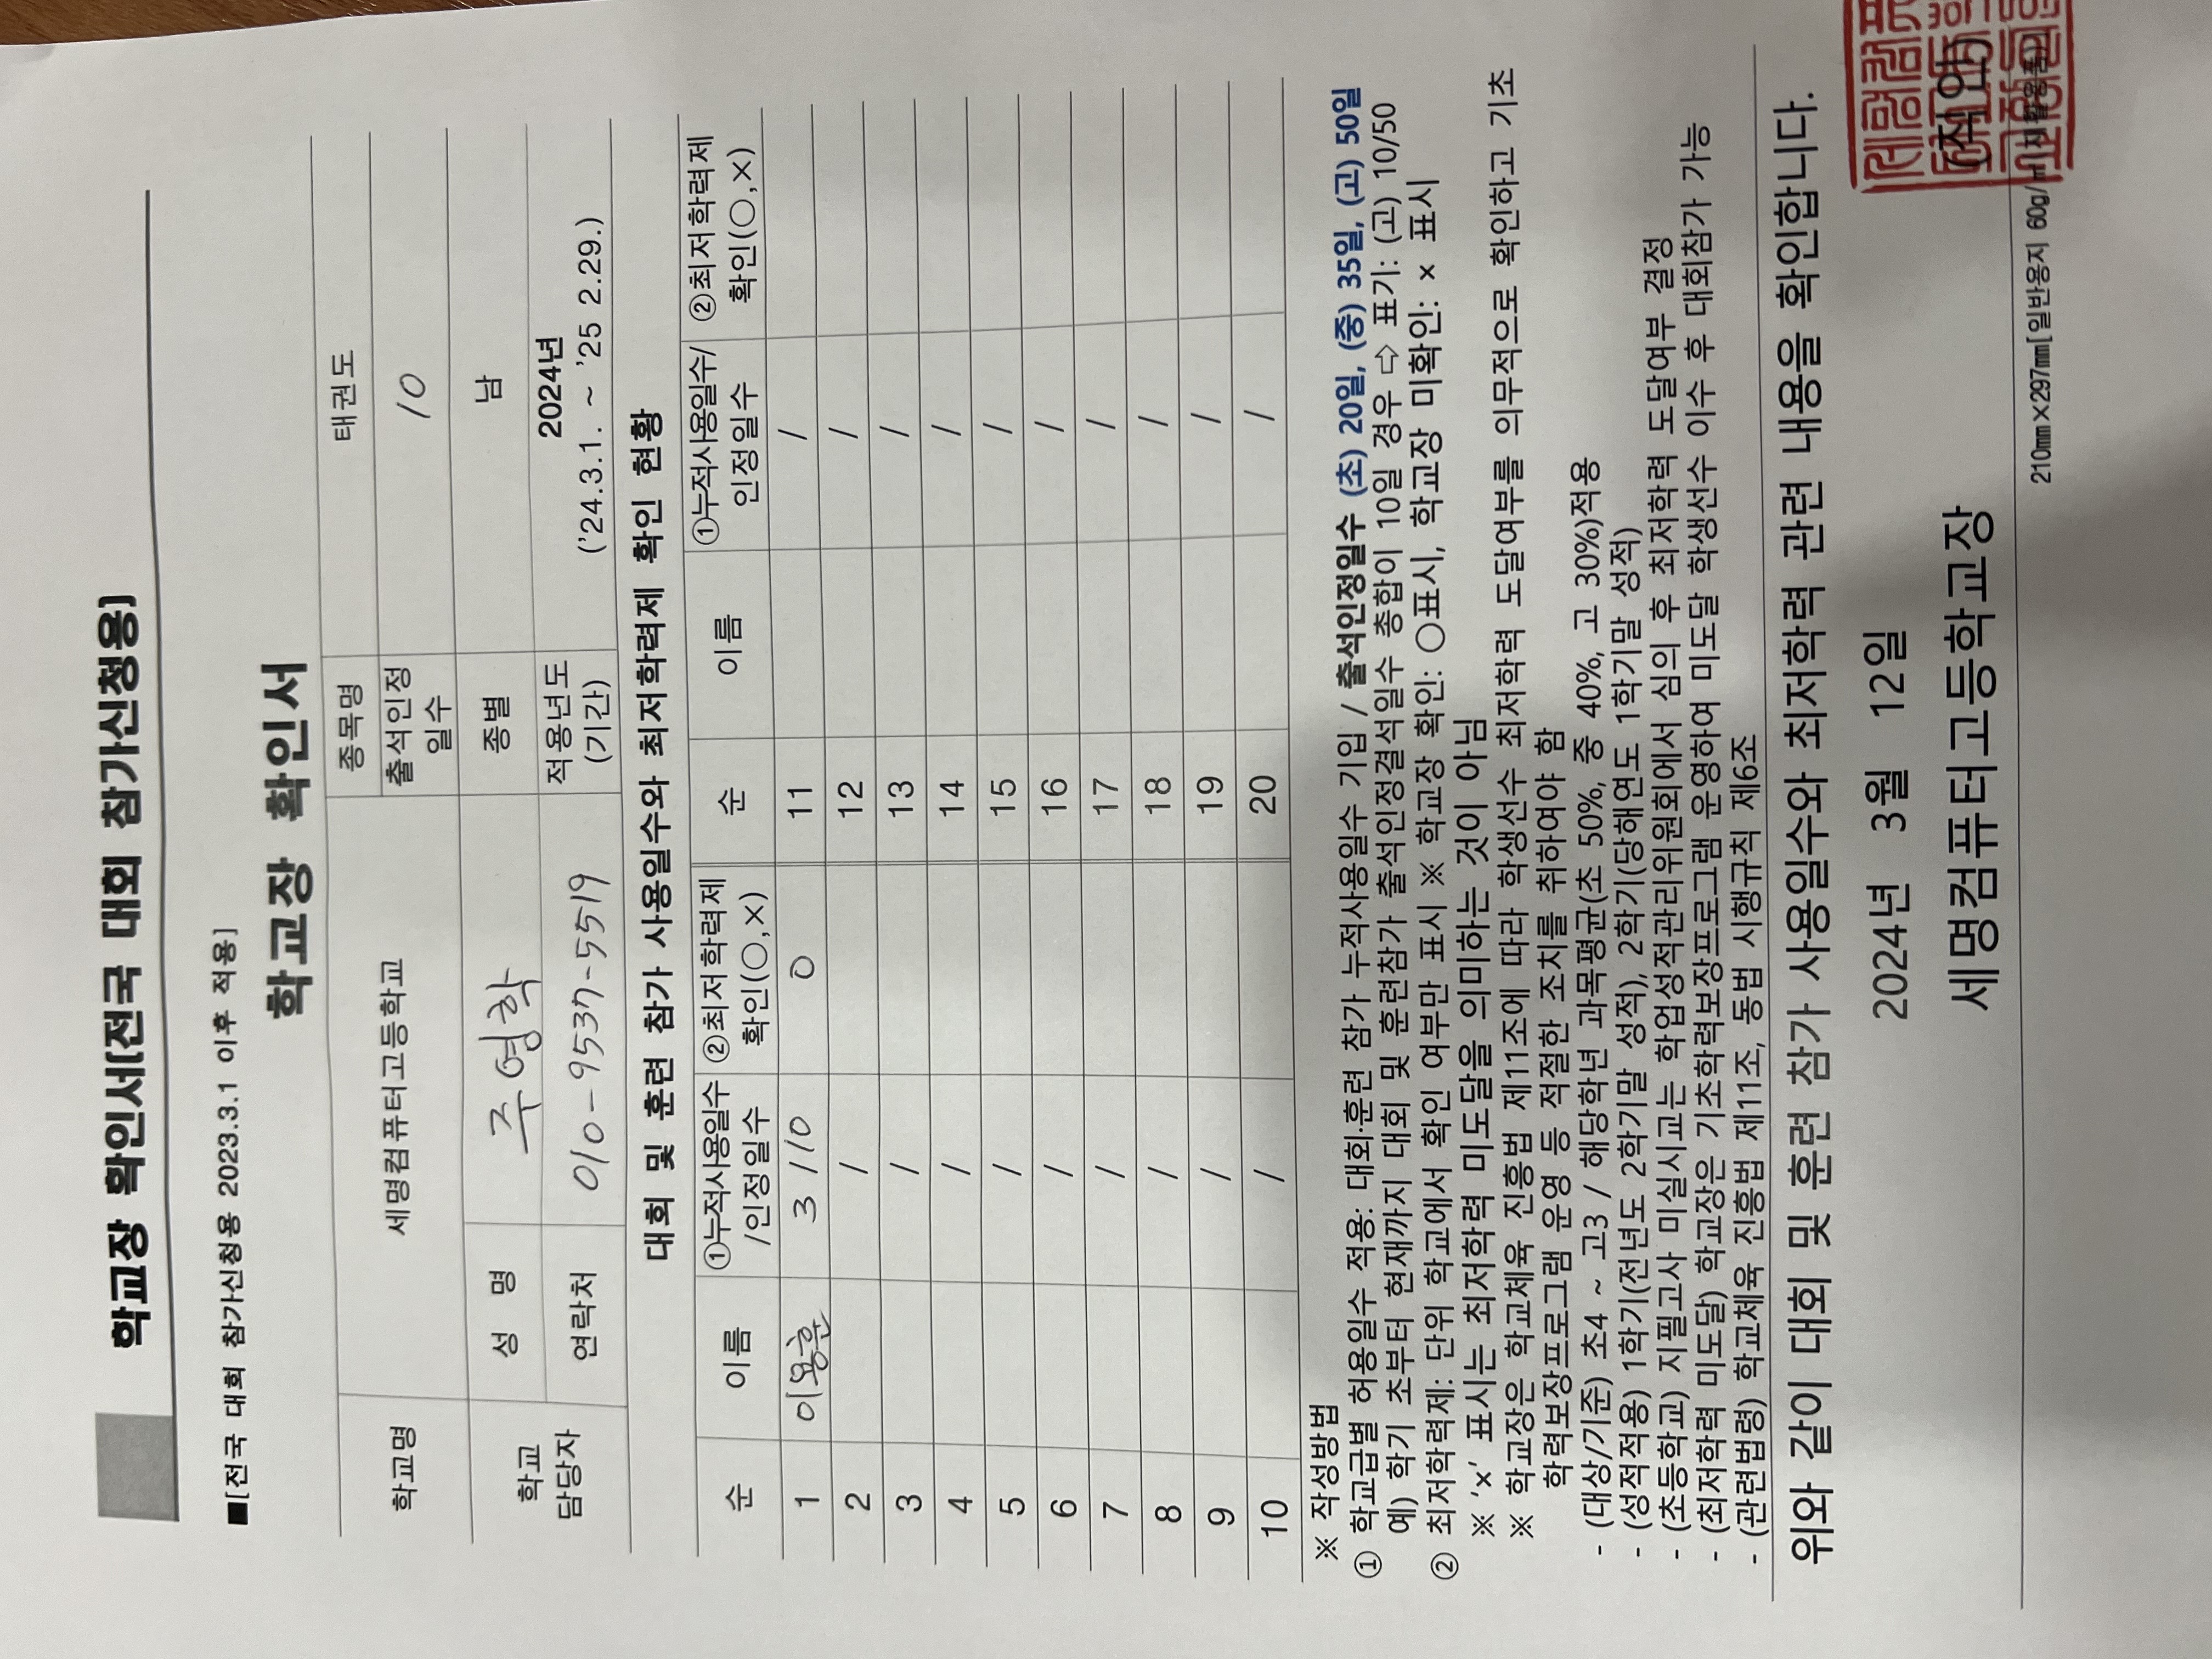 학교장 확인서(전국 대회 참가신청용)
■[전국 대회 참가신청용 2023.3.1 이후 적용]
학교장 확인서
학교명 세명컴퓨터고등학교 종목명 태권도
출석인정일수 10
학교 담당자 성 명 주영학 종별 남
연락처 010-9537-5519 적용년도(기간) 2024년 ('24.3.1. ~ '25 2.29.)
대회 및 훈련 참가 사용일수와 최저학력제 확인 현황
순 이름 ①누적사용일수/인정일수 ②최저학력제 확인(○,×) 순 이름 ①누적사용일수/인정일수 ②최저학력제 확인(○,×)
1 이용훈 3/10 O 11 /
2 / 12 /
3 / 13 /
4 / 14 /
5 / 15 /
6 / 16 /
7 / 17 /
8 / 18 /
9 / 19 /
10 / 20 /
※ 작성방법
① 학교급별 허용일수 적용: 대회·훈련 참가 누적사용일수 기입 / 출석인정일수 (초) 20일, (중) 35일, (고) 50일
예) 학기 초부터 현재까지 대회 및 훈련참가 출석인정결석일수 총합이 10일 경우 ⇨ 표기: (고) 10/50
② 최저학력제: 단위 학교에서 확인 여부만 표시 ※ 학교장 확인: ○표시, 학교장 미확인: × 표시
※ '×' 표시는 최저학력 미도달을 의미하는 것이 아님
※ 학교장은 학교체육 진흥법 제11조에 따라 학생선수 최저학력 도달여부를 의무적으로 확인하고 기초
학력보장프로그램 운영 등 적절한 조치를 취하여야 함
- (대상/기준) 초4 ~ 고3 / 해당학년 과목평균(초 50%, 중 40%, 고 30%)적용
- (성적적용) 1학기(전년도 2학기말 성적), 2학기(당해연도 1학기말 성적)
- (초등학교) 지필고사 미실시교는 학업성적관리위원회에서 심의 후 최저학력 도달여부 결정
- (최저학력 미도달) 학교장은 기초학력보장프로그램 운영하여 미도달 학생선수 이수 후 대회참가 가능
- (관련법령) 학교체육 진흥법 제11조, 동법 시행규칙 제6조
위와 같이 대회 및 훈련 참가 사용일수와 최저학력 관련 내용을 확인합니다.
2024년 3월 12일
세명컴퓨터고등학교장 (직인)
210㎜×297㎜[일반용지 60g/㎡(재활용품)]